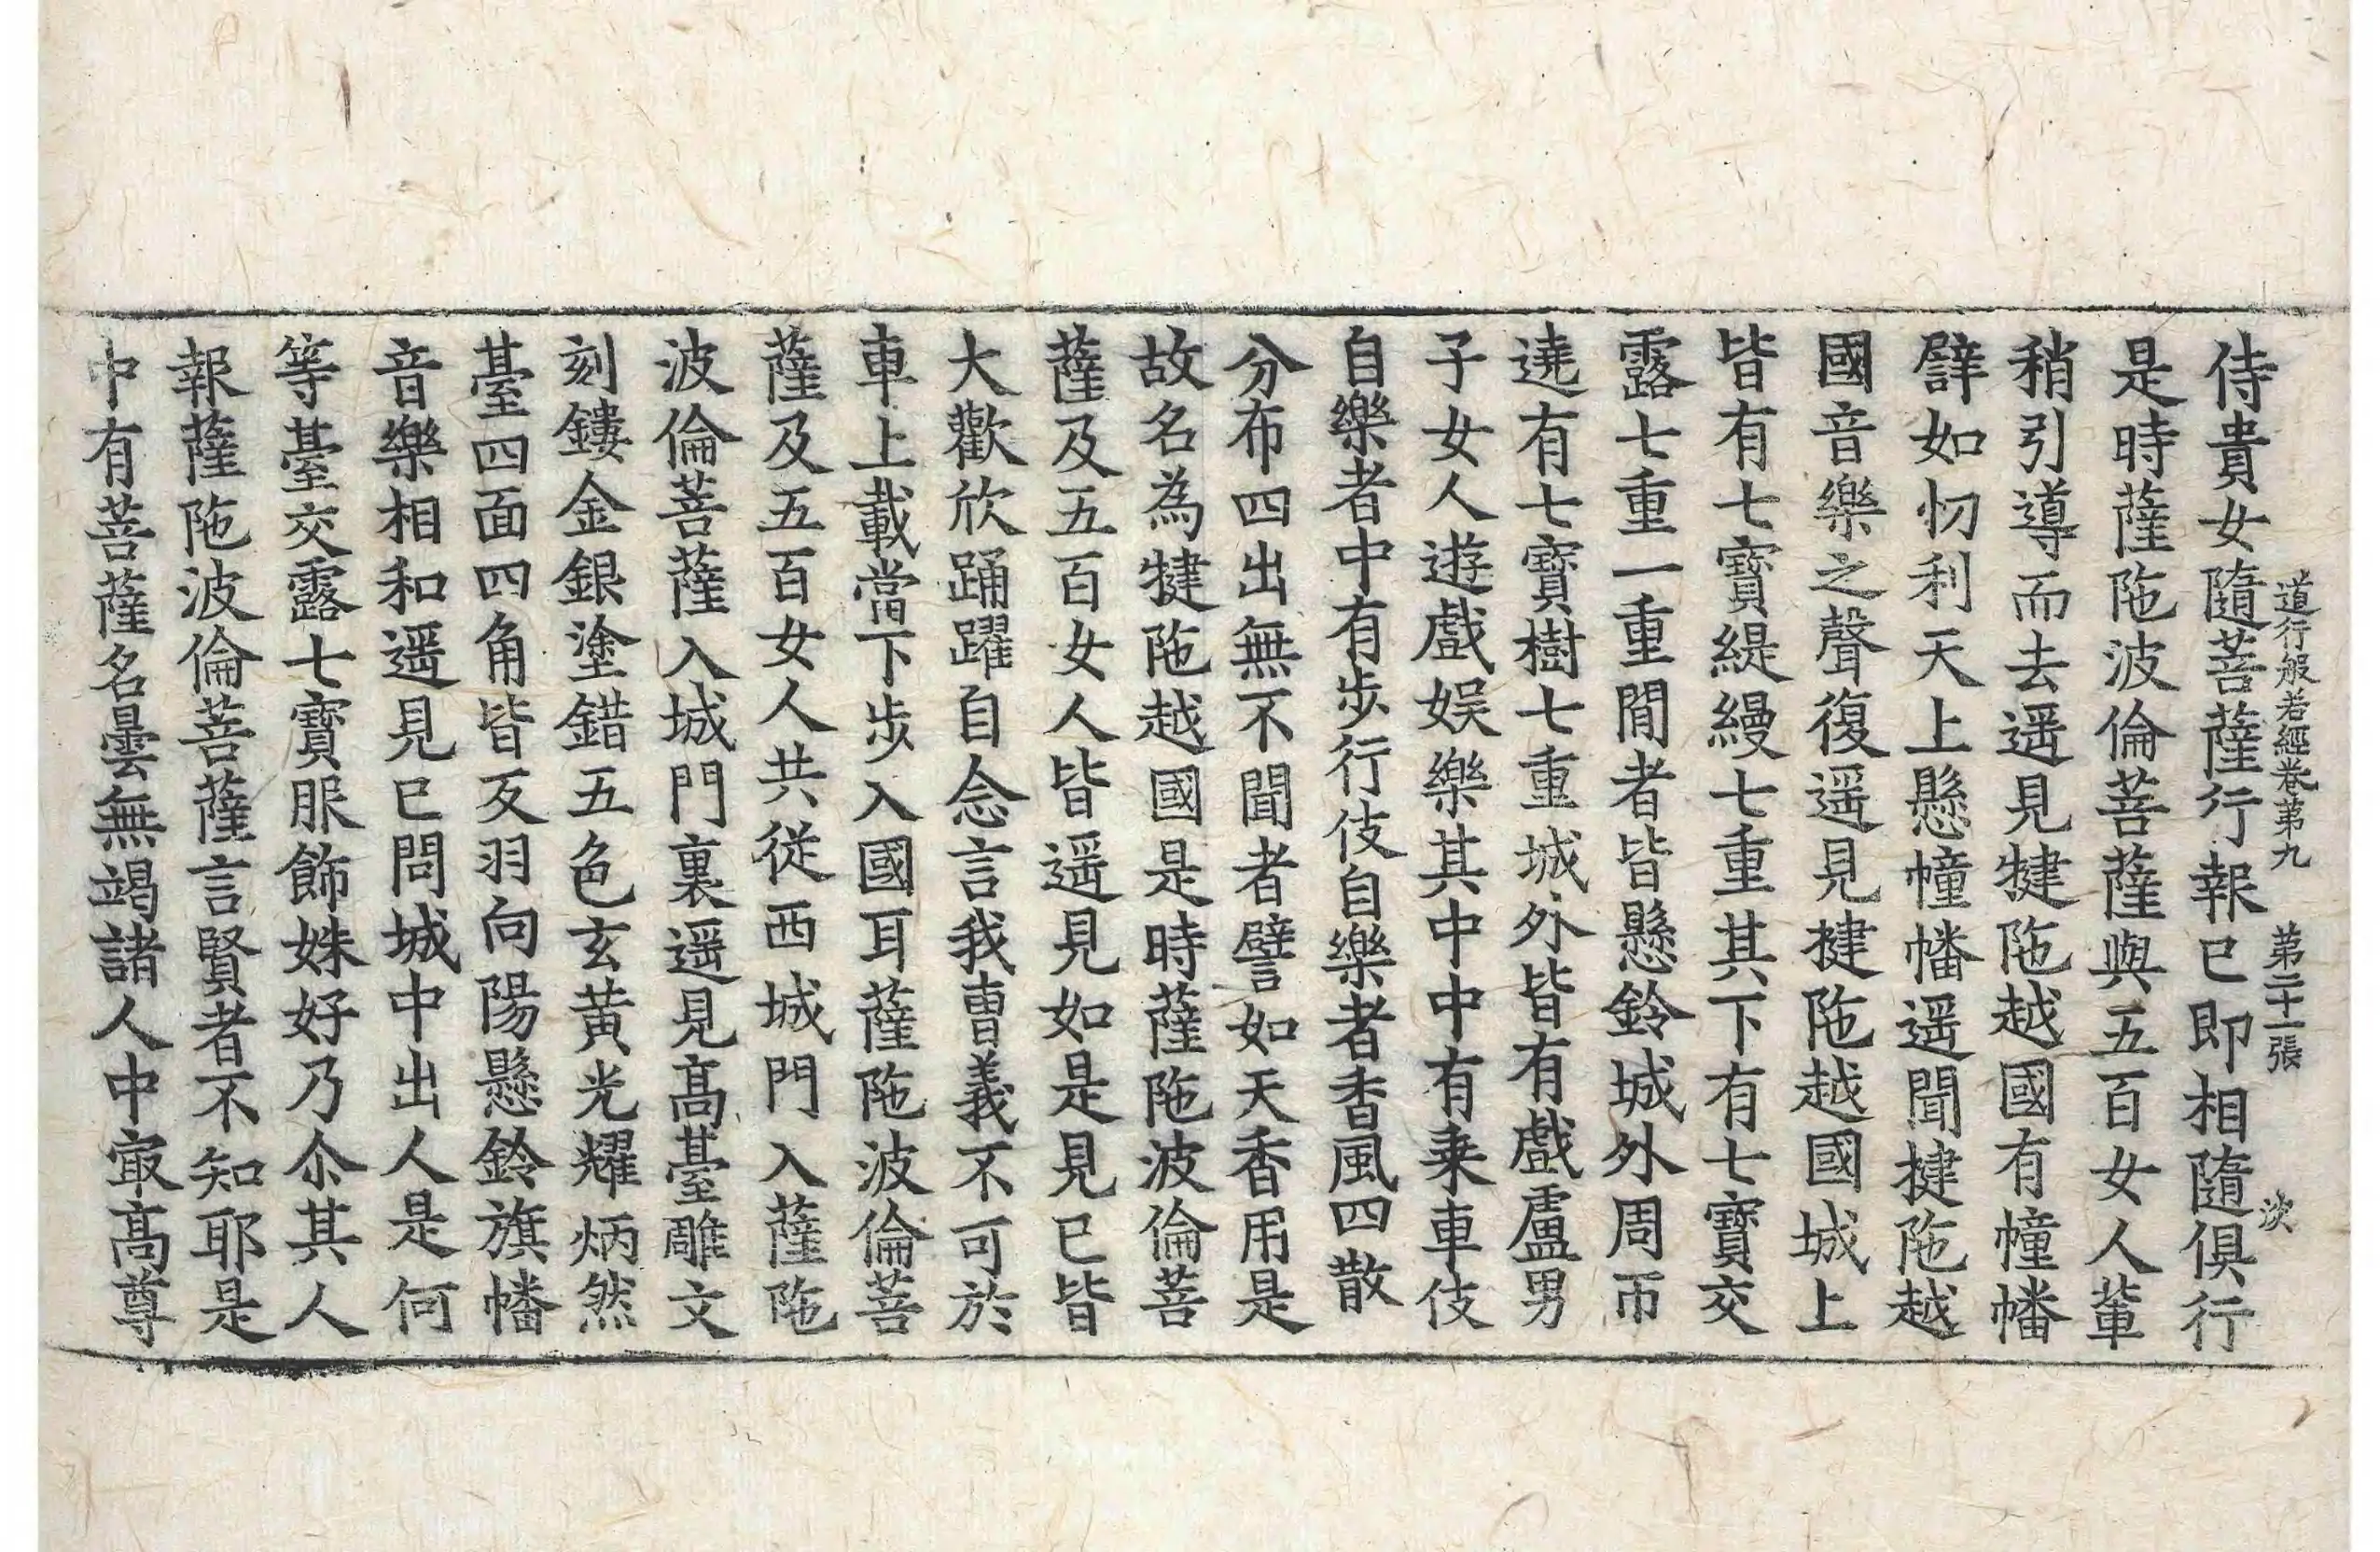 道行般若經卷第九　第二十一張　淡
侍貴女隨菩薩行報已即相隨俱行
是時薩陁波倫菩薩與五百女人輩
稍引導而去遥見揵陁越國有幢幡
譬如忉利天上懸幢幡遥聞揵陁越
國音樂之聲復遥見揵陁越國城上
皆有七寶緹縵七重其下有七寶交
露七重一重閒者皆懸鈴城外周帀
遶有七寶樹七重城外皆有戲廬男
子女人遊戲娱樂其中中有乗車伎
自樂者中有步行伎自樂者香風四散
分布四出無不聞者譬如天香用是
故名為揵陁越國是時薩陁波倫菩
薩及五百女人皆遥見如是見已皆
大歡欣踊躍自念言我曺義不可於
車上載當下步入國耳薩陁波倫菩
薩及五百女人共從西城門入薩陁
波倫菩薩入城門裏遥見髙臺雕文
刻鏤金銀塗錯五色玄黄光耀炳然
臺四面四角皆反羽向陽懸鈴旗幡
音樂相和遥見已問城中出人是何
等臺交露七寶服飾姝好乃尒其人
報薩陁波倫菩薩言賢者不知耶是
中有菩薩名曇無竭諸人中㝡髙尊